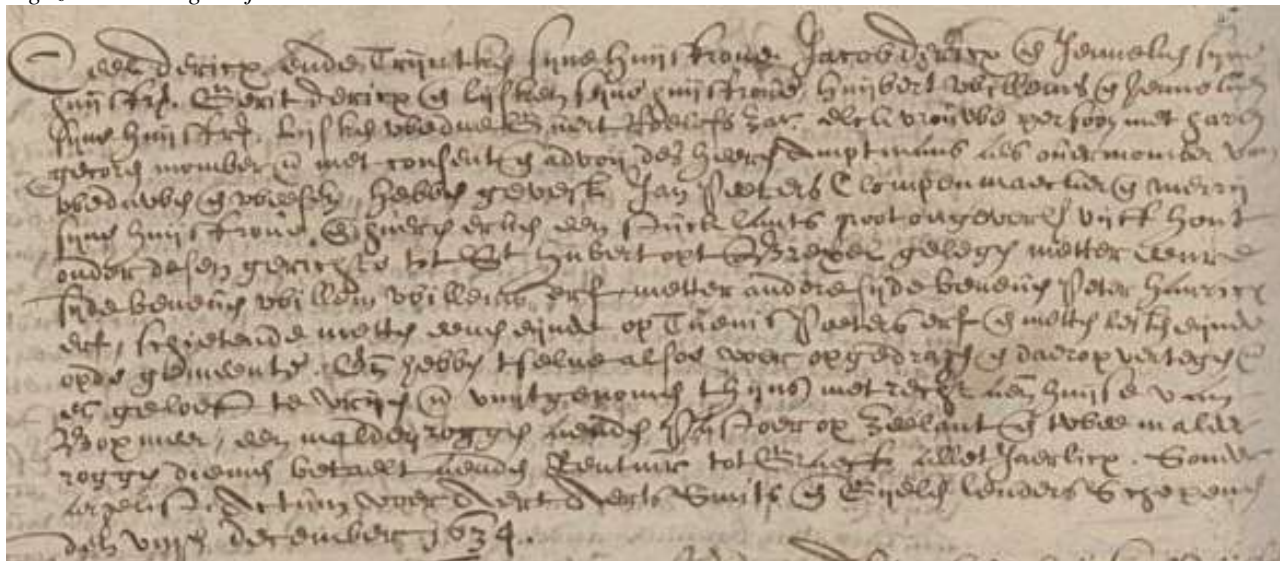 Ceel Dericx ende Trijntken sijne huijsfrouwe. Jacob Dericx en Jenneken sijne
huijsfr. Gerit Dericx en Lijsken sijne huijsfrouwe, Huijbert Willems en Jenneken
sijne huijsfr. Lijsken weduwe Geert Roelofs zar. elck vrouwe persoon met haren
gecoren momber en met consent en advoij des heeren Amptmans als overmomber van
weduwen en weesen, hebben geverk. Jan Peeters Clompenmaecker en Merrij
sijne huijsfrouwe en hueren erven een stuck lants groot ongeverlick vijff hont
onder desen gerichte tot St Hubert opt gelegen metter eenre
sijde beneven Willem Willems erf, metter andere sijde beneven Peter Henricx
erf, schietende metten eenen eijnde op Thonis Peeters erf en metten lesten eijnde
opde gemeente. En hebben tselve alsoe voer opgedragen en daerop vertegen
geloeft te vrijen en uuijtgenomen thijns met recht aen huijse van
Boxmeer, een malder roggen aenden Pastoer op Zeelant en twee malder
roggen dienen betaelt aenden Rentmr tot Graeff allet Jaerlicx. Sonder
argelist. Actum voer Aert Aerts Smits en Lenders Schepenen
den december 1634.